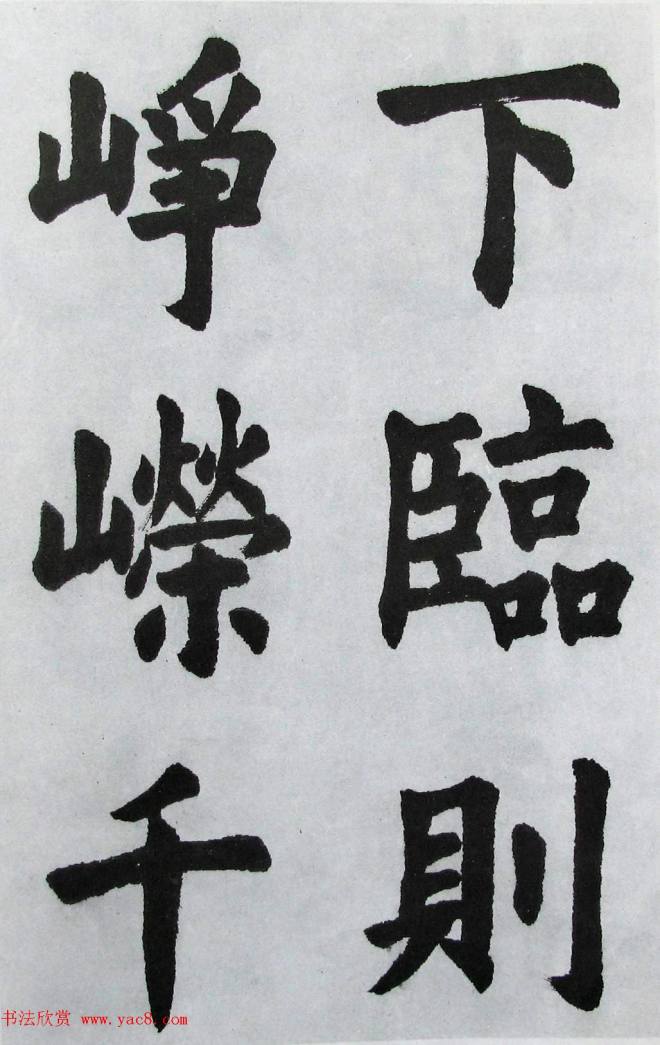 下臨則
崢嶸千
书法欣赏 www.yac8.com